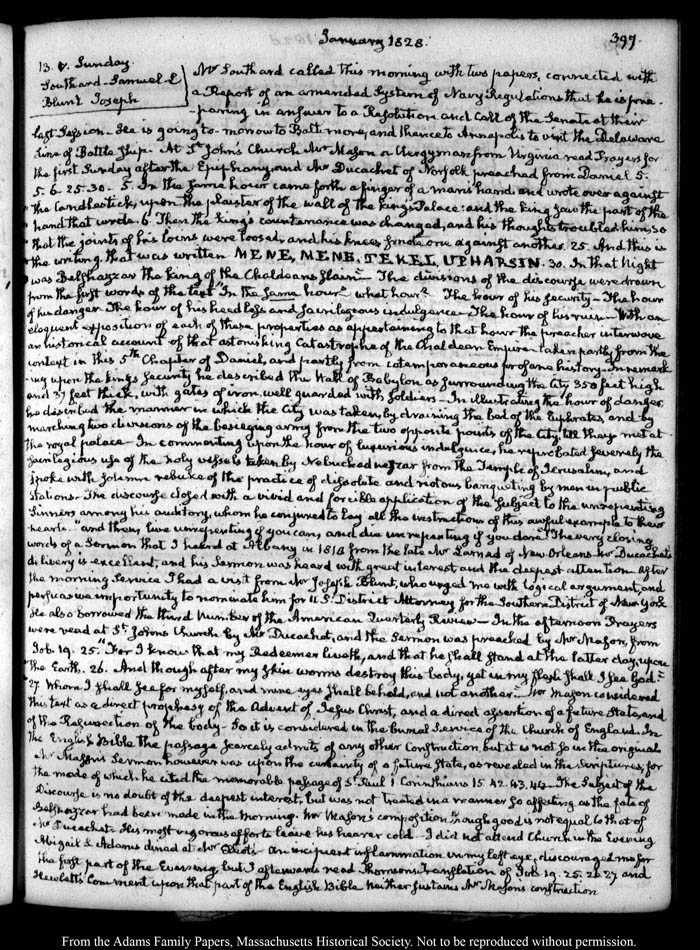 January 1828.
397.
13. V. Sunday.
Southard-Samuel L
Blunt Joseph
Mr Southard called this morning with two papers, connected with
a Report of an amended System of Navy Regulations that he is pre-
-paring in answer to a Resolution and Call of the Senate at their
last Session. He is going to-morrow to Baltimore, and thence to Annapolis to visit the Delaware
Line of Battle Ship. At St John's Church Mr Mason a Clergyman from Virginia read Prayers for
the first Sunday after the Epiphany, and Mr Ducachet of Norfolk preached from Daniel 5.
5. 6. 25. 30. 5. In the same hour came forth a finger of a man's hand and wrote over against
the Candlestick, upon the plaister of the wall of the king's Palace: and the king saw the part of the
hand that wrote. 6 Then the king's countenance was changed, and his thoughts troubled him, so
that the joints of his loins were loosed, and his knees smote one against another. 25. And this is
the writing that was written MENE, MENE, TEKEL, UPHARSIN. 30. In that Night
was Belshazzar the king of the Chaldeans slain." The divisions of the discourse were drawn
from the first words of the text "In the same hour" what hour? The hour of his security—The hour
of his danger. The hour of his heedless and sacrilegious indulgence—The hour of his ruin—With an
eloquent exposition of each of these properties as appertaining to that hour the preacher interwove
an historical account of that astonishing Catastrophe of the Chaldean Empire taken partly from the
context in this 5th Chapter of Daniel, and partly from cotemporaneous profane history. In remark-
-ing upon the king's security he described the Wall of Babylon as surrounding the City 350 feet high
and 87 feet thick, with gates of iron well guarded with soldiers—In illustrating the hour of danger
he described the manner in which the City was taken, by draining the bed of the Euphrates, and by
marching two divisions of the besieging army from the two opposite points of the City, till they met at
the royal palace—In commenting upon the hour of luxurious indulgence, he reprobated severely the
sacrilegious use of the holy vessels taken by Nebuchadnezzar from the Temple of Jerusalem, and
spoke with solemn rebuke of the practice of dissolute and riotous banqueting by men in public
stations—The discourse closed with a vivid and forcible application of the subject to the unrepenting
Sinners among his auditory, whom he conjured to lay all the instructions of this awful example to their
hearts. "and then, live unrepenting if you can, and die unrepenting if you dare." The very closing
words of a Sermon that I heard at Albany in 1818 from the late Mr Larned of New Orleans. Mr Ducachet's
delivery is excellent, and his Sermon was heard with great interest, and the deepest attention. After
the morning Service I had a visit from Mr Joseph Blunt, who urged me with logical argument, and
perspicuous importunity to nominate him for U.S. District Attorney for the Southern District of New York.
He also borrowed the third Number of the American Quarterly Review—In the afternoon Prayers
were read at St John's Church by Mr Ducachet, and the Sermon was preached by Mr Mason, from
Job. 19. 25. "For I know that my Redeemer liveth, and that he shall stand at the latter day, upon
the Earth. 26. And though after my skin worms destroy this body, yet in my flesh shall I see God:
27. Whom I shall see for myself, and mine eyes shall behold, and not another." Mr Mason considered
this text as a direct prophesy of the Advent of Jesus Christ, and a direct assertion of a future State, and
of the Resurrection of the body—So it is considered in the burial Service of the Church of England. In
the English Bible the passage scarcely admits of any other Construction, but it is not so in the original.
Mr Mason's Sermon however was upon the certainty of a future State, as revealed in the Scriptures, for
the mode of which he cited the memorable passage of St Paul 1 Corinthians 15. 42. 43. 44—The Subject of the
Discourse is no doubt of the deepest interest, but was not treated in a manner so affecting as the fate of
Belshazzar had been made in the Morning. Mr Mason's composition though good is not equal to that of
Mr Ducachet. His most vigorous efforts leave his hearer cold—I did not attend Church in the Evening
Abigail S. Adams dined at Mr An incipient inflammation in my left eye, discouraged me for
the first part of the Evening, but I afterwards read Thomson's translation of Job. 19. 25. 26. 27 and
Hewlett's Comment upon that part of the English Bible. Neither sustains Mr Mason's construction
From the Adams Family Papers, Massachusetts Historical Society. Not to be reproduced without permission.